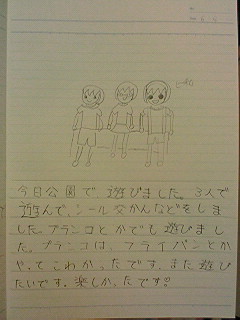 今日公園で遊びました。3人で
遊んで、シール交かんなどをしま
した。ブランコとかでも遊びまし
た。ブランコは、フライパンとか
やってこわかったです。また遊び
たいです。楽しかったです。